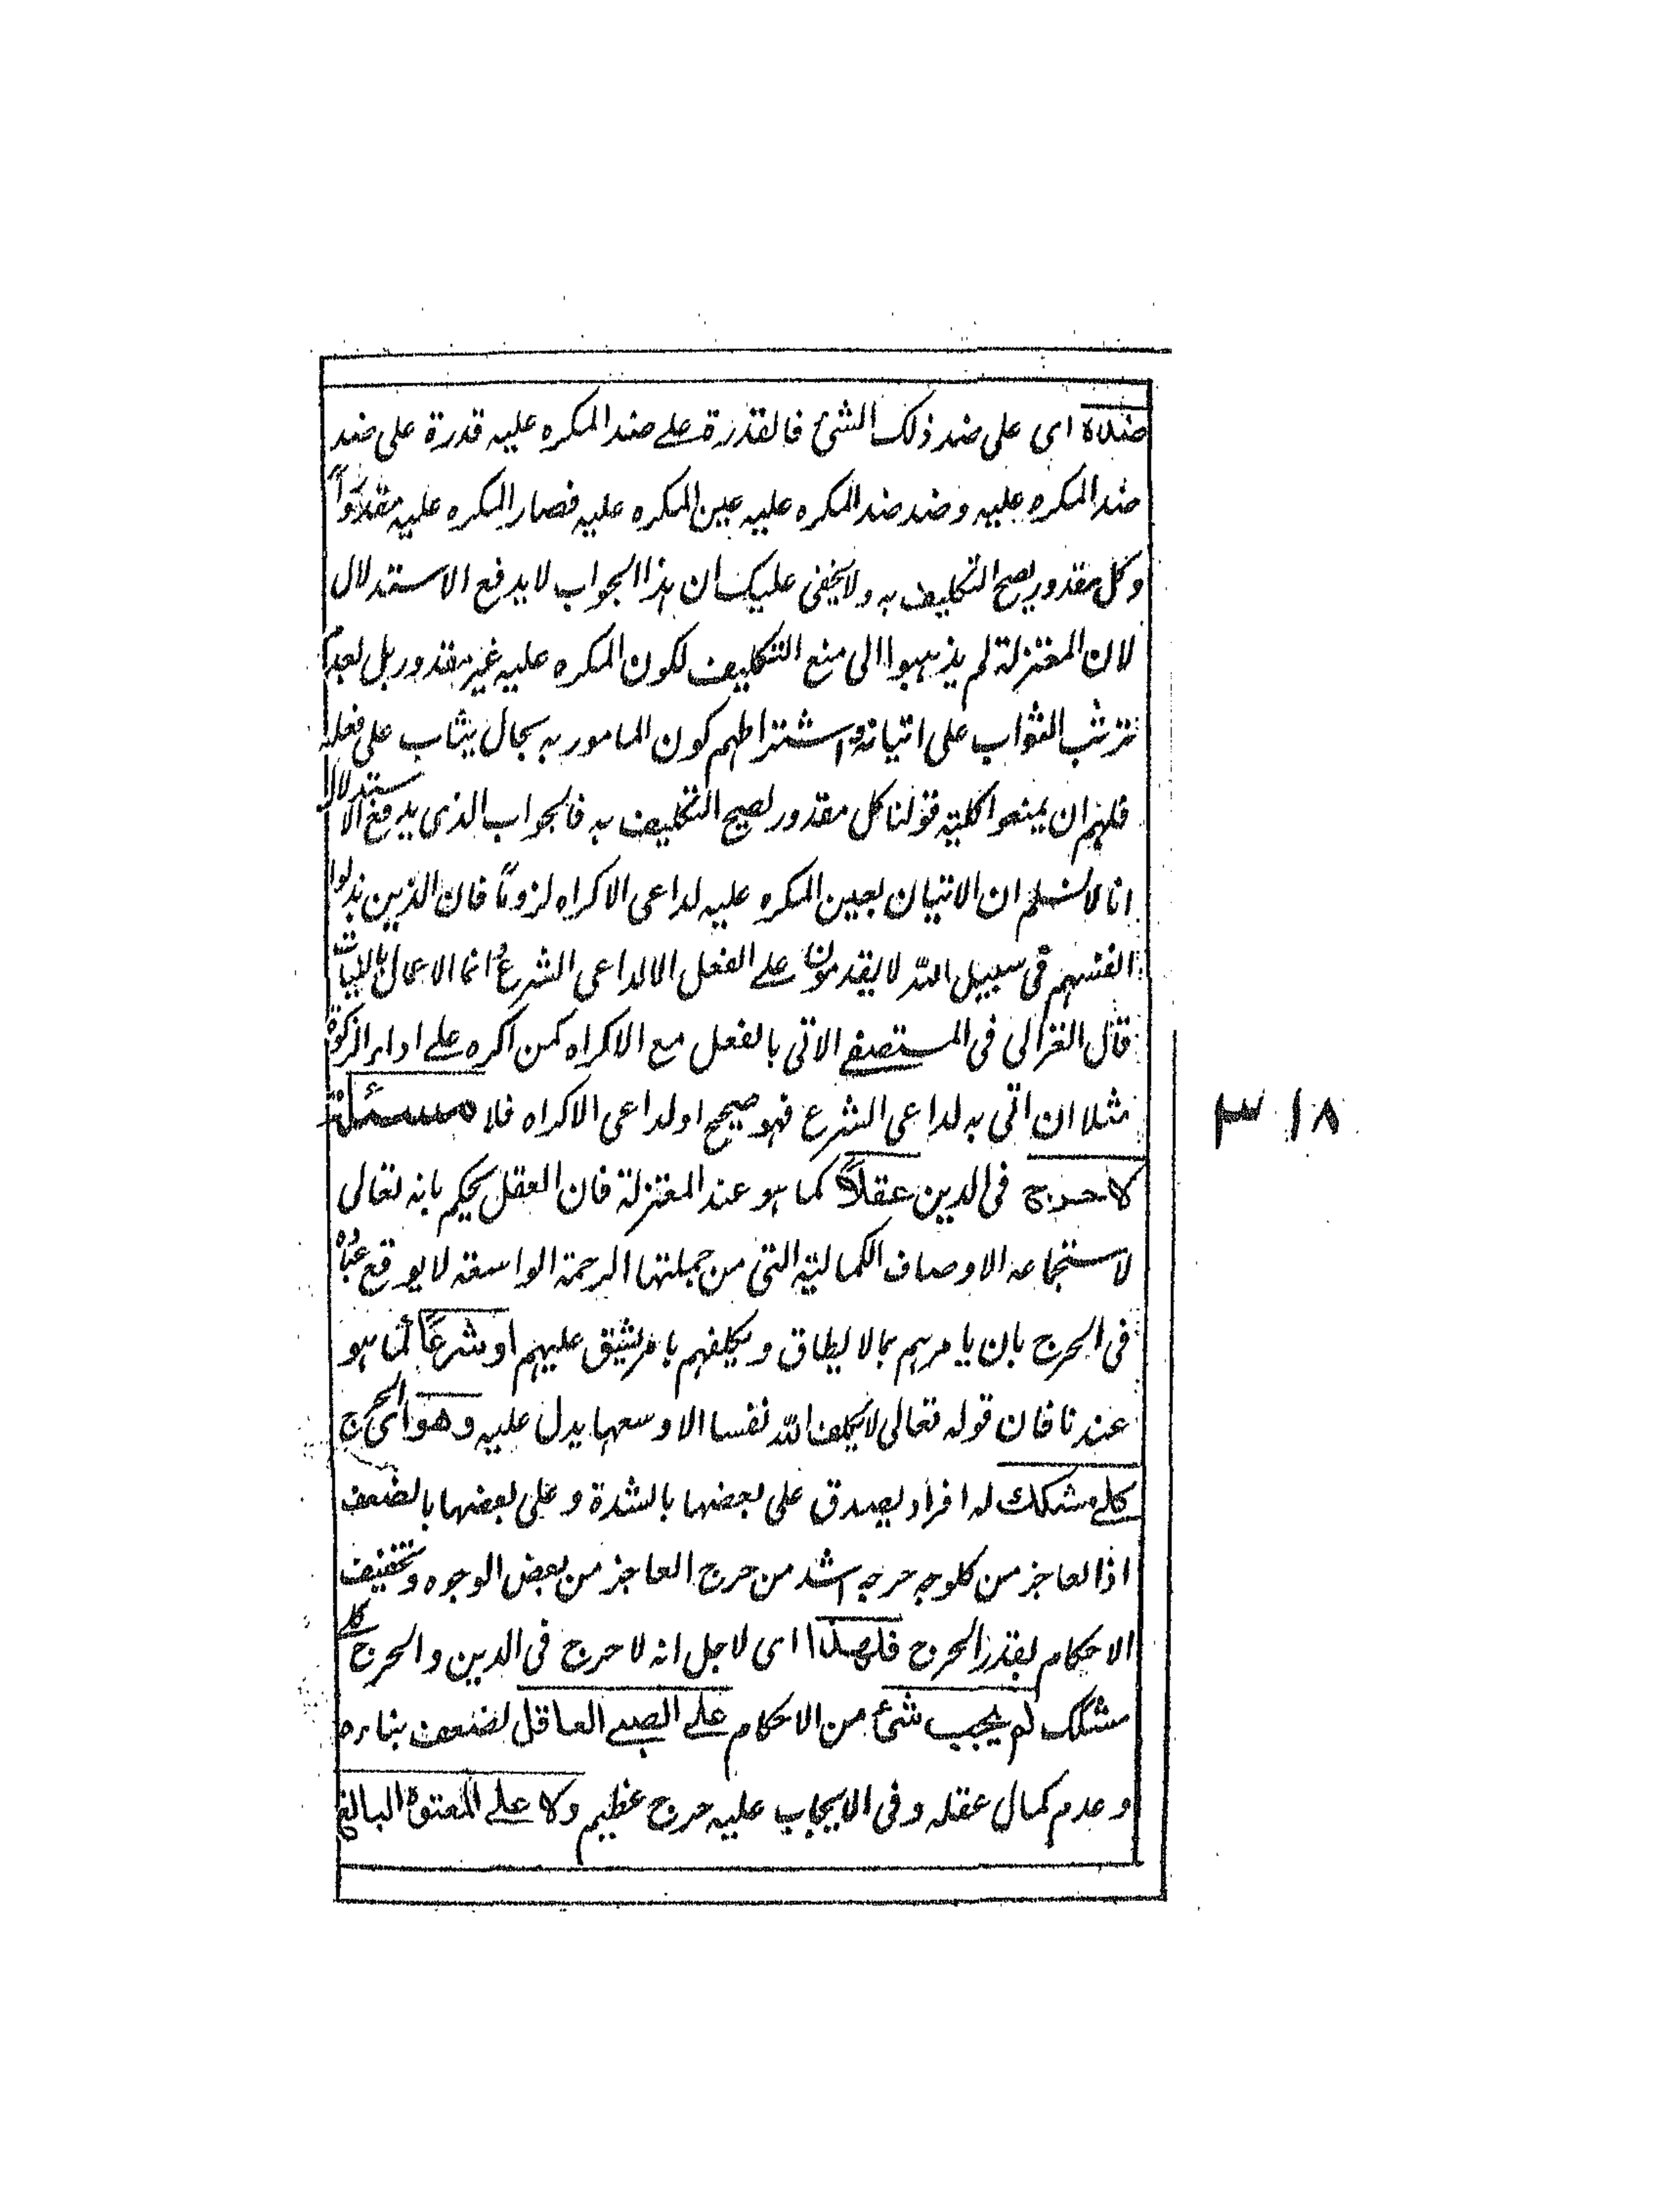 ضده اى على ضد ذلك الشئ فالقدرة على ضد المكره عليه قدرة على ضد
ضد المكره عليه و ضد ضد المكره عليه عين المكره عليه فصار المكره عليه مقدورا
وكل مقدور يصح التكليف به ولا يخفى عليك ان هذا الجواب لا يدفع الاستدلال
لان المعتزلة لم يذهبوا الى منع التكليف لكون المكره عليه غير مقدور بل لعدم
ترتب الثواب على اتيانه و اشتراطهم كون المامور به بحال يثاب على فعله
فلهم ان يمنعوا كلية قولنا كل مقدور يصح التكليف به فالجواب الذى يدفع الاستدلال
انا لا نسلم ان الاتيان بعين المكره عليه لداعى الاكراه لزوماً فان الذين بذلوا
انفسهم فى سبيل الله لا يقدمون على الفعل الا لداعى الشرع وانما الاعمال بالنيات
قال الغزالى فى المستصفى الاتى بالفعل مع الاكراه كمن اكره على اداء الزكوة
مثلا ان اتى به لداعى الشرع فهو صحيح او لداعى الاكراه فلا مسئلة
۳۱۸
لا حرج فى الدين عقلاً كما هو عند المعتزلة فان العقل يحكم بانه تعالى
لاستجماعه الاوصاف الكمالية التى من جملتها الرحمة الواسعة لا يوقع عباده
فى الحرج بان يامرهم بما لا يطاق و يكلفهم بامر يشق عليهم او شرعاً كما هو
عندنا فان قوله تعالى لا يكلف الله نفسا الا وسعها يدل عليه و هو اى الحرج
كلى مشكك له افراد يصدق على بعضها بالشدة و على بعضها بالضعف
اذ العاجز من كل وجه حرجه اشد من حرج العاجز من بعض الوجوه و تخفيف
الاحكام بقدر الحرج فلهذا اى لاجل انه لا حرج فى الدين و الحرج كلى
مشكك لم يجب شئ من الاحكام على الصبى العاقل لضعف بناءه
و عدم كمال عقله و فى الايجاب عليه حرج عظيم ولا على المعتوه البالغ